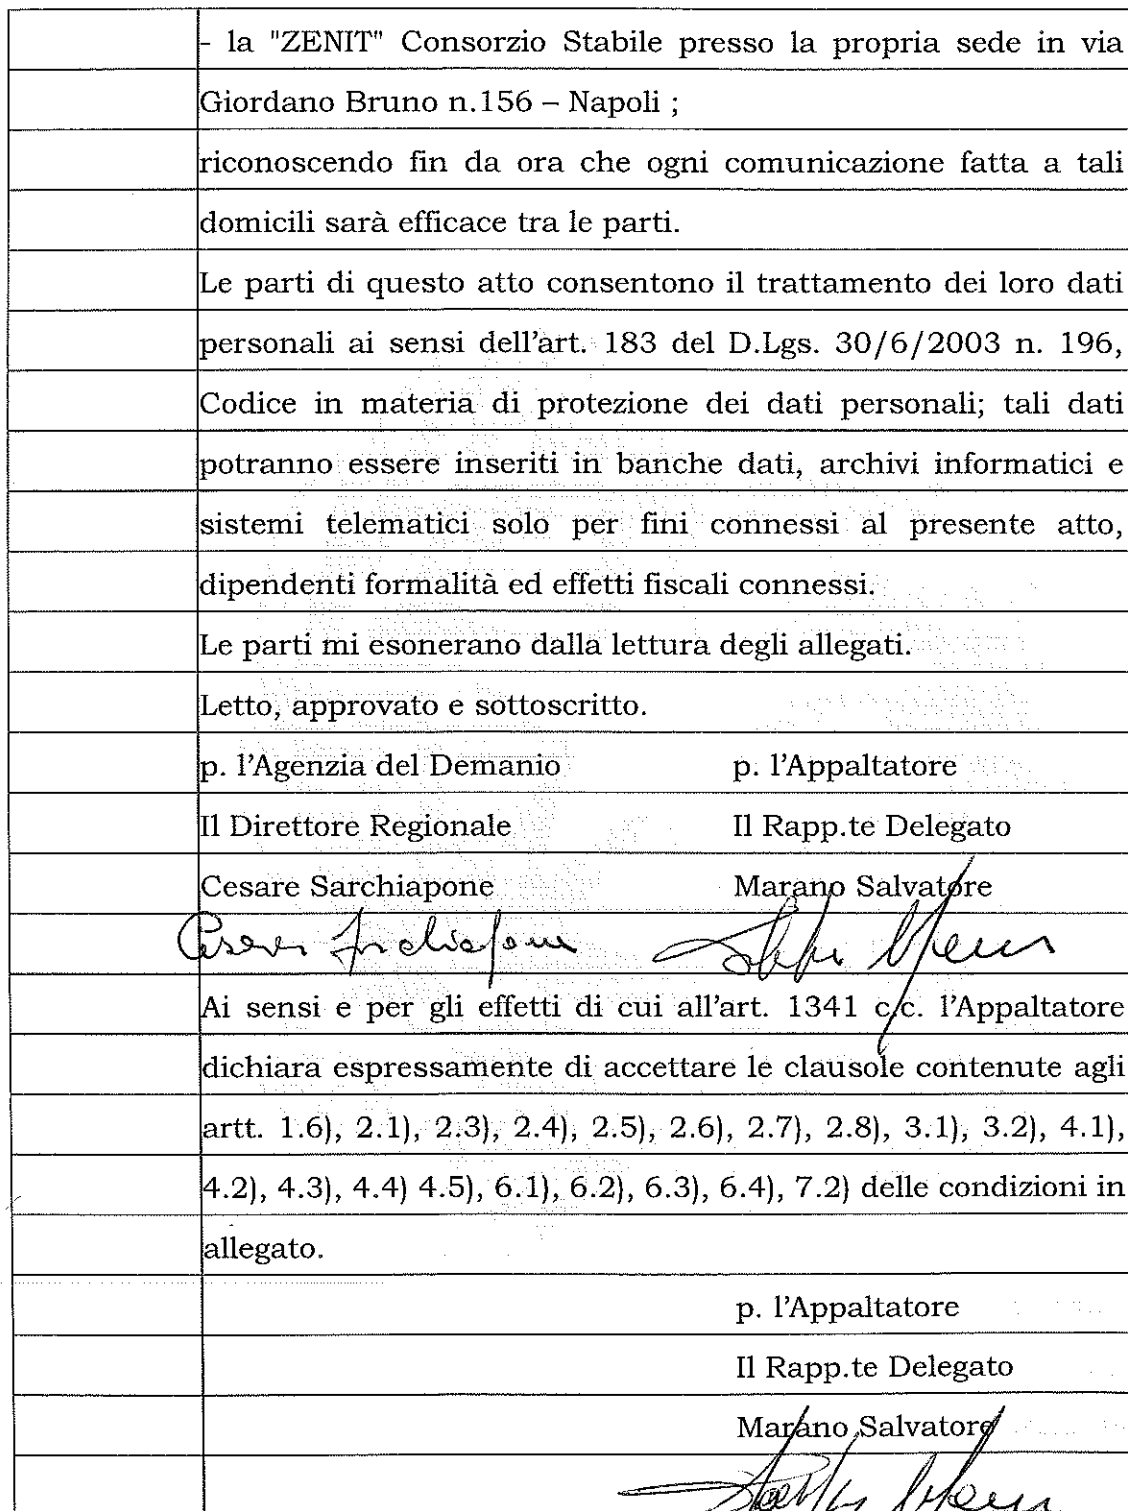 - la "ZENIT" Consorzio Stabile presso la propria sede in via
Giordano Bruno n.156 – Napoli ;
riconoscendo fin da ora che ogni comunicazione fatta a tali
domicili sarà efficace tra le parti.
Le parti di questo atto consentono il trattamento dei loro dati
personali ai sensi dell'art. 183 del D.Lgs. 30/6/2003 n. 196,
Codice in materia di protezione dei dati personali; tali dati
potranno essere inseriti in banche dati, archivi informatici e
sistemi telematici solo per fini connessi al presente atto,
dipendenti formalità ed effetti fiscali connessi.
Le parti mi esonerano dalla lettura degli allegati.
Letto, approvato e sottoscritto.
p. l'Agenzia del Demanio p. l'Appaltatore
Il Direttore Regionale Il Rapp.te Delegato
Cesare Sarchiapone Marano Salvatore
Ai sensi e per gli effetti di cui all'art. 1341 c/c. l'Appaltatore
dichiara espressamente di accettare le clausole contenute agli
artt. 1.6), 2.1), 2.3), 2.4), 2.5), 2.6), 2.7), 2.8), 3.1), 3.2), 4.1),
4.2), 4.3), 4.4) 4.5), 6.1), 6.2), 6.3), 6.4), 7.2) delle condizioni in
allegato.
p. l'Appaltatore
Il Rapp.te Delegato
Marano Salvatore